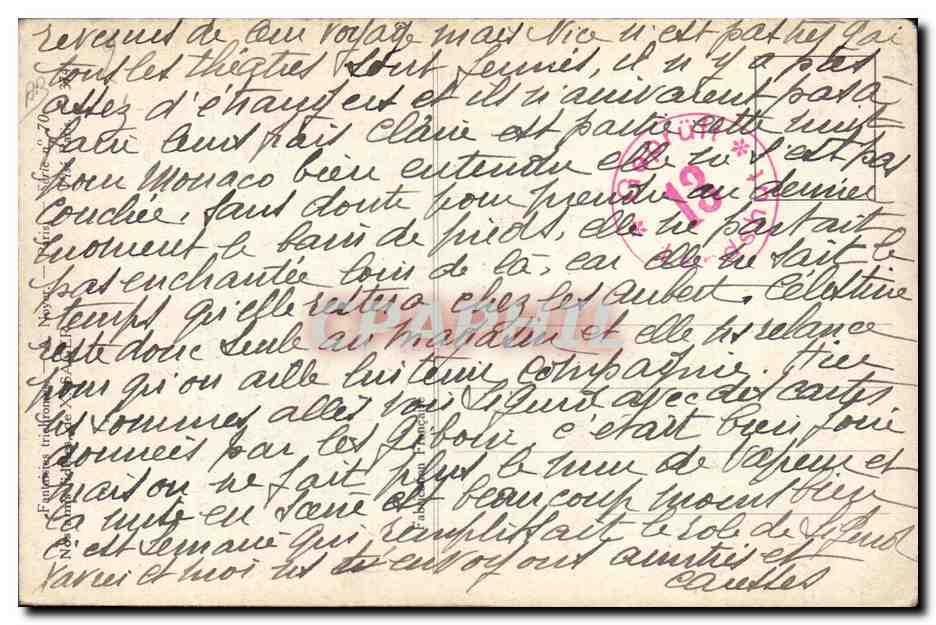 revenues de leur voyage mais Nice n'est pas très gai
tous les théâtres sont fermés, il n'y a pas
assez d'étrangers et ils n'arrivaient pas à
faire leurs frais Claire est partie cette nuit
pour Monaco bien entendu elle ne s'est pas
couchée, sans doute pour prendre au dernier
moment le bain de pieds, elle ne partait
pas enchantée loin de là, car elle ne sait le
temps qu'elle restera chez les Aubert. Célestine
reste donc seule au magasin et elle ns relance
pour qu'on aille lui tenir compagnie. Hier
ns sommes allés voir Sigurd avec des cartes
données par les c'était bien joué
mais on ne fait plus le mur de vapeur et
la mise en scène est beaucoup moins bien
c'est qui remplissait le rôle de Sigurd
Xavier et moi ns t'envoyons amitiés et
caresses
Geprüft
13
CPAPHIL
Fantaisies
Noyer. — Paris Série n° 70
Fabrication Française